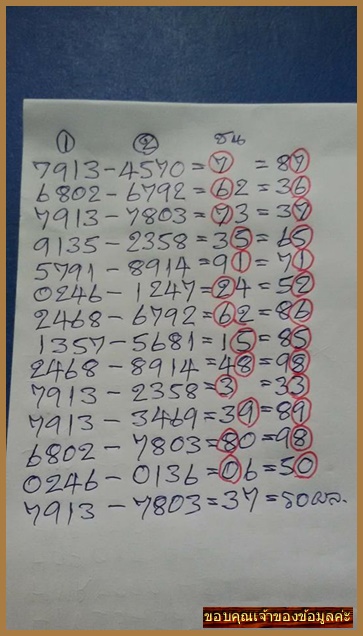 ① ② ชน
7913-4570=7 =87
6802-6792=62=36
7913-7803=73=37
9135-2358=35=65
5791-8914=91=71
0246-1247=24=52
2468-6792=62=86
1357-5681=15=85
2468-8914=48=98
7913-2358=3 =33
7913-3469=39=89
6802-7803=80=98
0246-0136=06=50
7913-7803=37=รอผล.
ขอบคุณเจ้าของข้อมูลค่ะ